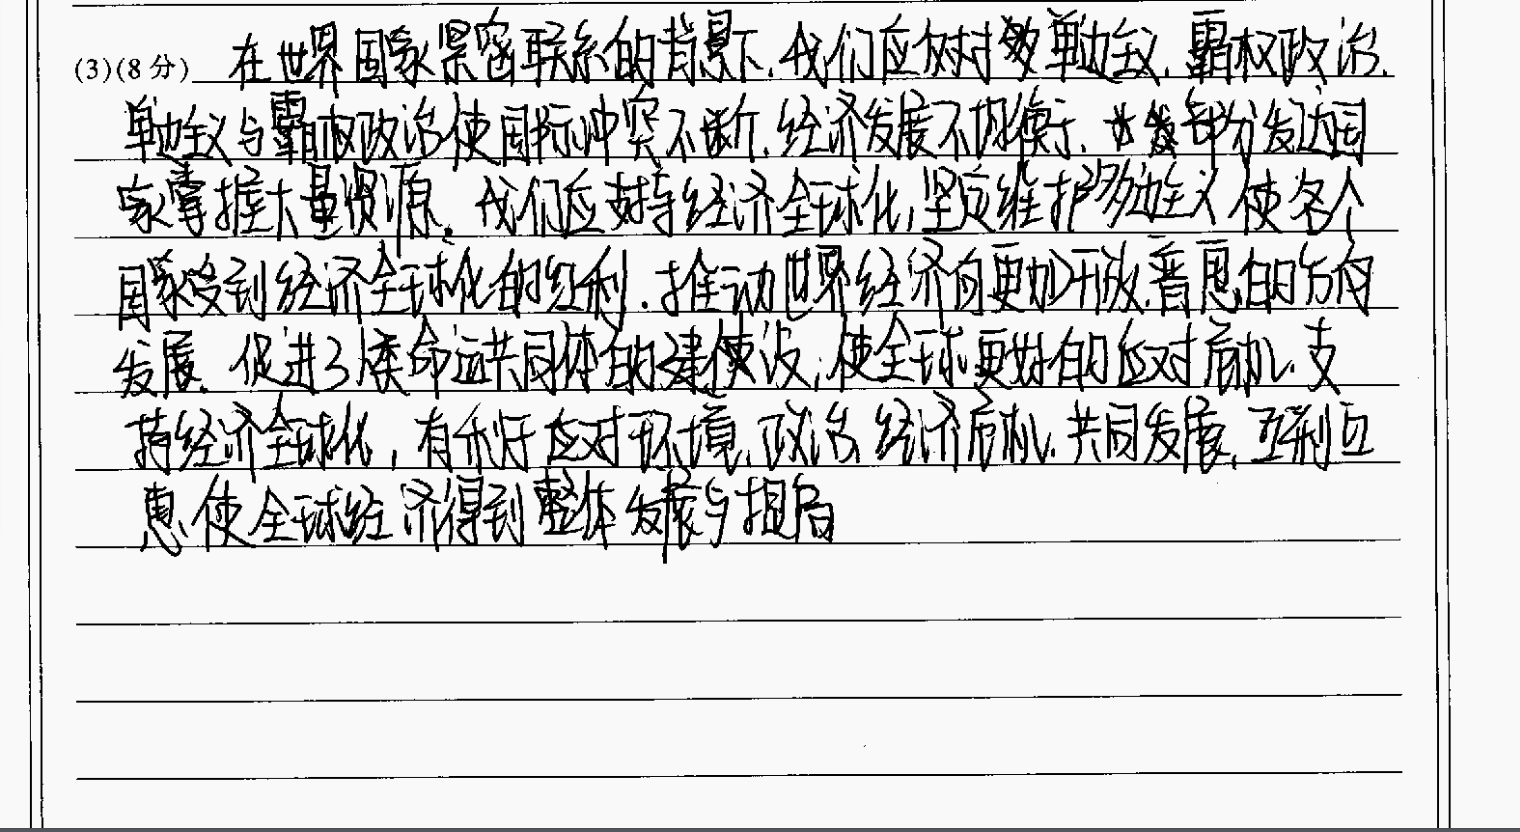 (3)(8分) 在世界国家紧密联系的背景下,我们应反对单边主义,霸权政治,
单边主义与霸权政治使国际冲突不断,经济发展不均衡,部分发达国
家掌握大量资源。我们应支持经济全球化,坚定维护多边主义使各个
国家受到经济全球化的红利.推动世界经济向更加开放,普惠的方向
发展.促进了人类命运共同体的建设,使全球更好的应对危机.支
持经济全球化,有利于应对环境,政治,经济危机.共同发展,互利互
惠.使全球经济得到整体发展与提高